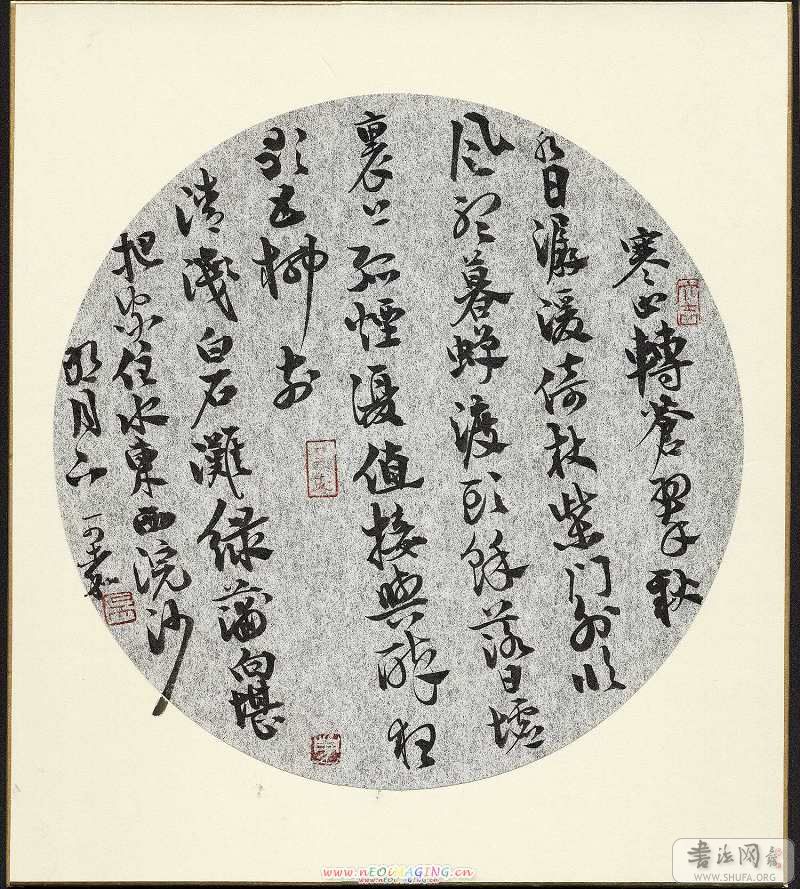 寒山轉蒼翠秋
水日潺湲倚杖柴門外臨
風聽暮蟬渡頭餘落日墟
裏上孤煙復值接輿醉狂
歌五柳前
清淺白石灘綠蒲向堪
把家住水東西浣沙
明月下
www.nEOiMAGING.cn
书法网
WWW.SHUFA.ORG